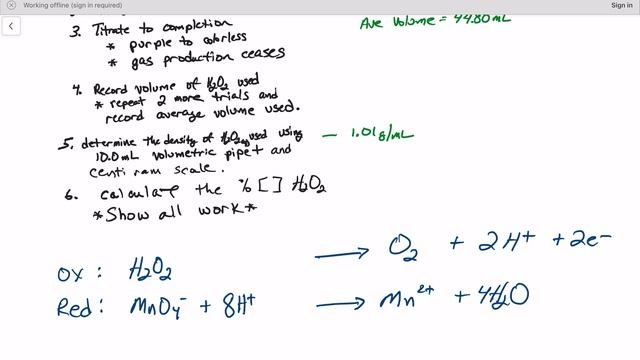 Working offline (sign in required)
Sign in
3. Titrate to completion
* purple to colorless
* gas production ceases
Ave Volume = 44.80 mL
4. Record volume of H₂O₂ used
* repeat 2 more trials and
record average volume used.
5. determine the density of H₂O₂ used using
10.0mL volumetric pipet and
centi ram scale.
— 1.01g/mL
6. calculate the % [ ] H₂O₂
*Show all work*
Ox: H₂O₂ → O₂ + 2H⁺ + 2e⁻
Red: MnO₄⁻ + 8H⁺ → Mn²⁺ + 4H₂O